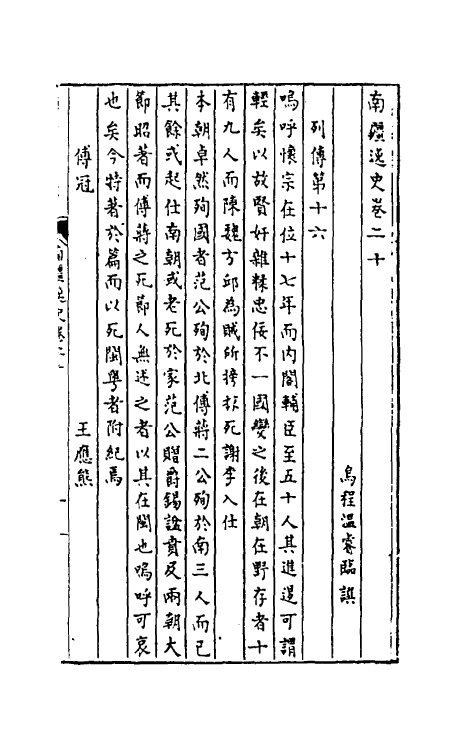 南疆逸史卷二十
烏程溫睿臨譔
列傳第十六
嗚呼懷宗在位十七年而內閣輔臣至五十人其進退可謂
輕矣以故賢奸雜糅忠佞不一國變之後在朝在野存者十
有九人而陳魏方邱為賊所搒掠死謝李入仕
本朝卓然殉國者范公殉於北傅蔣二公殉於南三人而已
其餘或起仕南朝或老死於家范公贈爵錫諡賁及兩朝大
節昭著而傅蔣之死節人無述之者以其在閩也嗚呼可哀
也矣今特著於篇而以死閩粵者附紀焉
傅冠
王應熊
南疆逸史卷二十